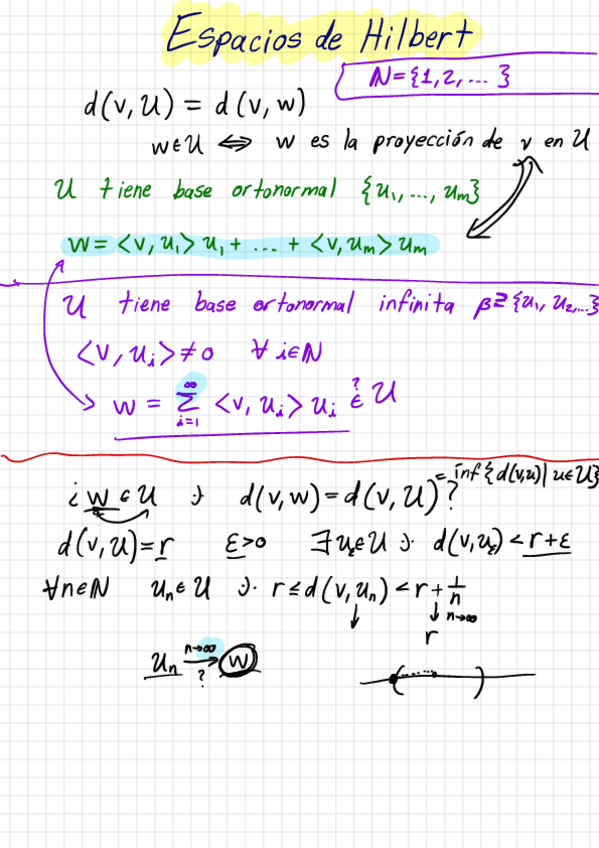 Espacios de Hilbert
N={1,2,...}
d(v,U) = d(v,w)
w∈U ⟺ w es la proyección de v en U
U tiene base ortonormal {u₁,...,uₘ}
w = <v,u₁>u₁ + ... + <v,uₘ>uₘ
U tiene base ortonormal infinita β⊇{u₁,u₂,...}
<v,uᵢ> ≠ 0 ∀ i∈N
w = ∑_{i=1}^{∞} <v,uᵢ>uᵢ ∈? U
¿w∈U ∋. d(v,w) = d(v,U)? = inf{d(v,u)|u∈U}
d(v,U)=r ε>0 ∃u_ε∈U ∋. d(v,u_ε) < r+ε
∀n∈N uₙ∈U ∋. r ≤ d(v,uₙ) < r + 1/n
↓ ↓ n→∞
r
uₙ →(n→∞) w
?